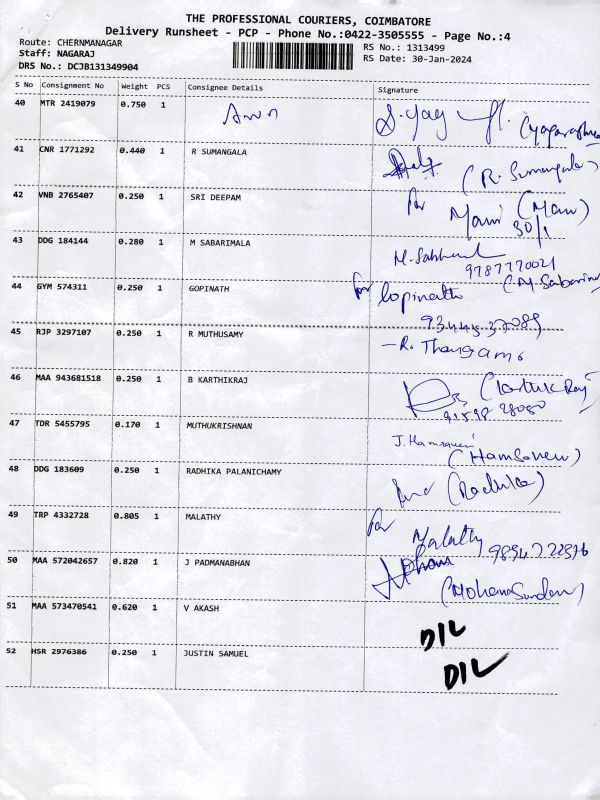 THE PROFESSIONAL COURIERS, COIMBATORE
Delivery Runsheet - PCP - Phone No.:0422-3505555 - Page No.:4
Route: CHERNMANAGAR
RS No.: 1313499
Staff: NAGARAJ
RS Date: 30-Jan-2024
DRS No.: DCJB131349904
S No Consignment No Weight PCS Consignee Details Signature
40 MTR 2419079 0.750 1
41 CNR 1771292 0.440 1 R SUMANGALA
(R. Sumangala)
42 VNB 2765407 0.250 1 SRI DEEPAM
for Mani (Mani)
30/1
43 DDG 184144 0.280 1 M SABARIMALA
9787770021
44 GYM 574311 0.250 1 GOPINATH
for Gopinath
45 RJP 3297107 0.250 1 R MUTHUSAMY
-R. Thangam.
46 MAA 943681518 0.250 1 B KARTHIKRAJ
(Karthik Raj)
47 TDR 5455795 0.170 1 MUTHUKRISHNAN
48 DDG 183609 0.250 1 RADHIKA PALANICHAMY
(Radhika)
49 TRP 4332728 0.805 1 MALATHY
for Malathy
50 MAA 572042657 0.820 1 J PADMANABHAN
51 MAA 573470541 0.620 1 V AKASH
D/L
52 HSR 2976386 0.250 1 JUSTIN SAMUEL
D/L